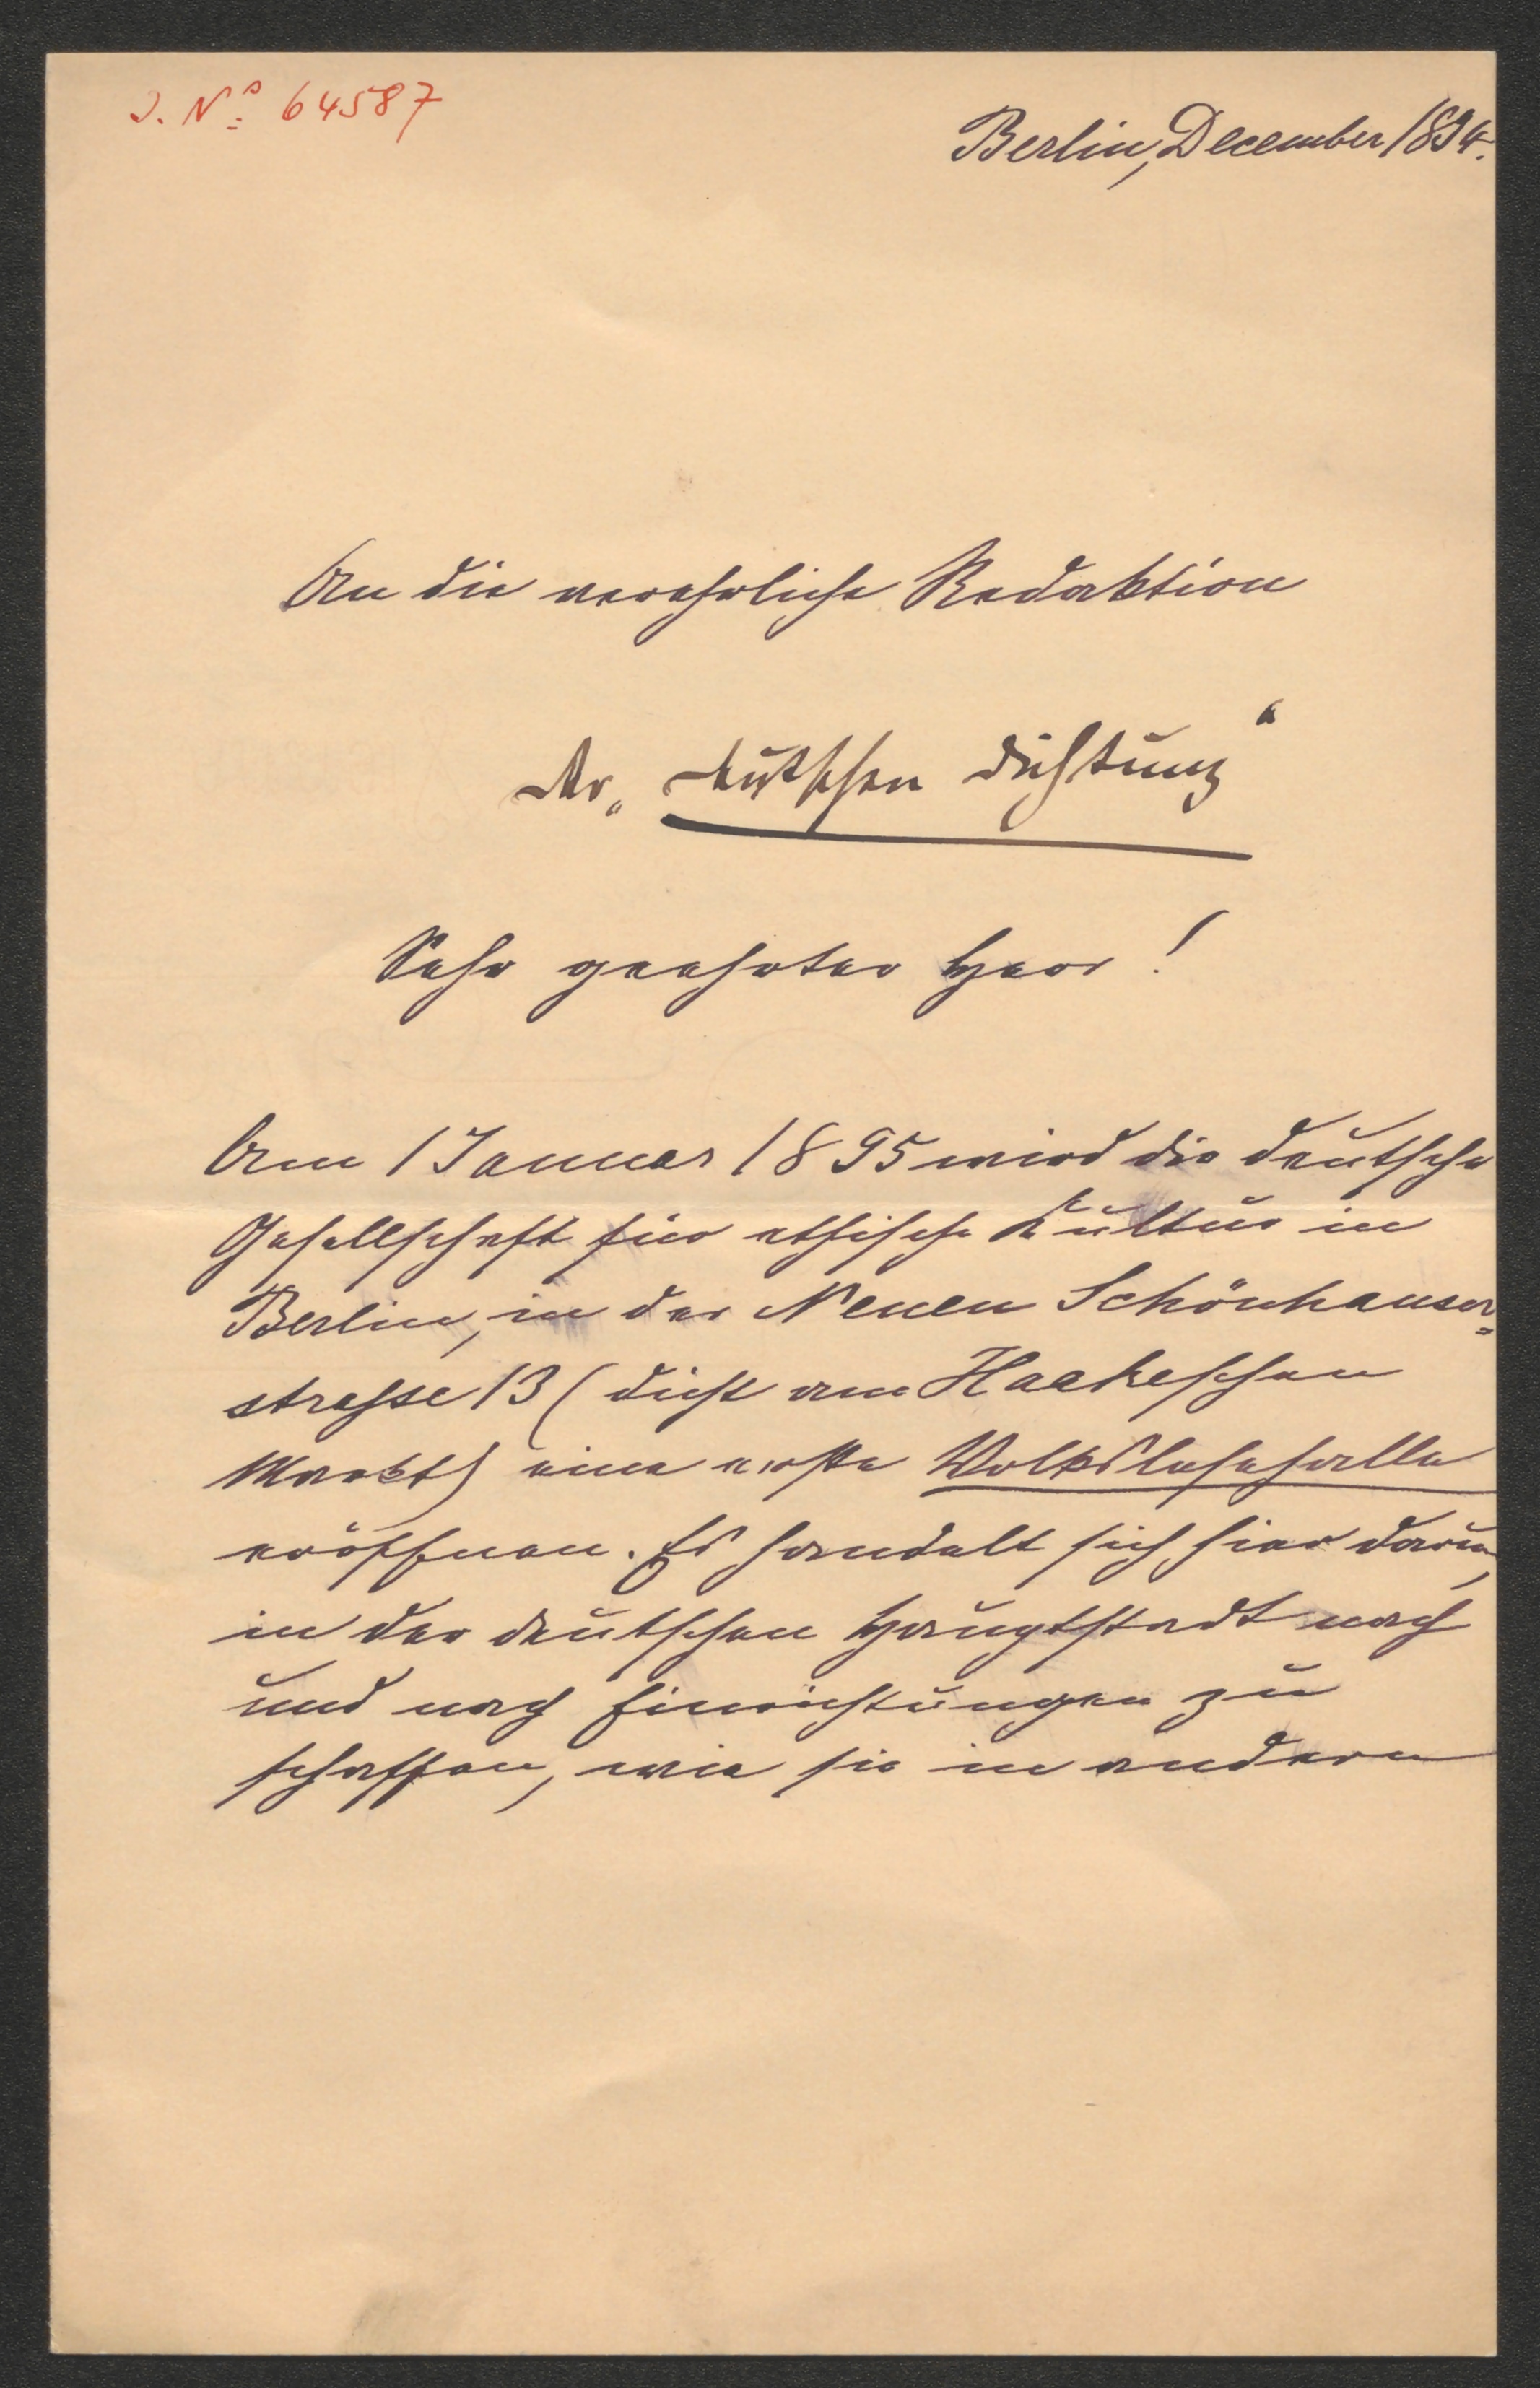 J. No: 64587
Berlin, December 1894.
An die verehrliche Redaktion
der „Deutschen Dichtung“
Sehr geehrter Herr!
Am 1 Januar 1895 wird die deutsche
Gesellschaft für ethische Kultur in
Berlin, in der Neuen Schönhauser=
strasse 13 (dicht am Hackeschen
Markt) eine erste Volkslesehalle
eröffnen. Es handelt sich hier darum,
in der deutschen Hauptstadt nach
und nach Einrichtungen zu
schaffen, wie sie in andern